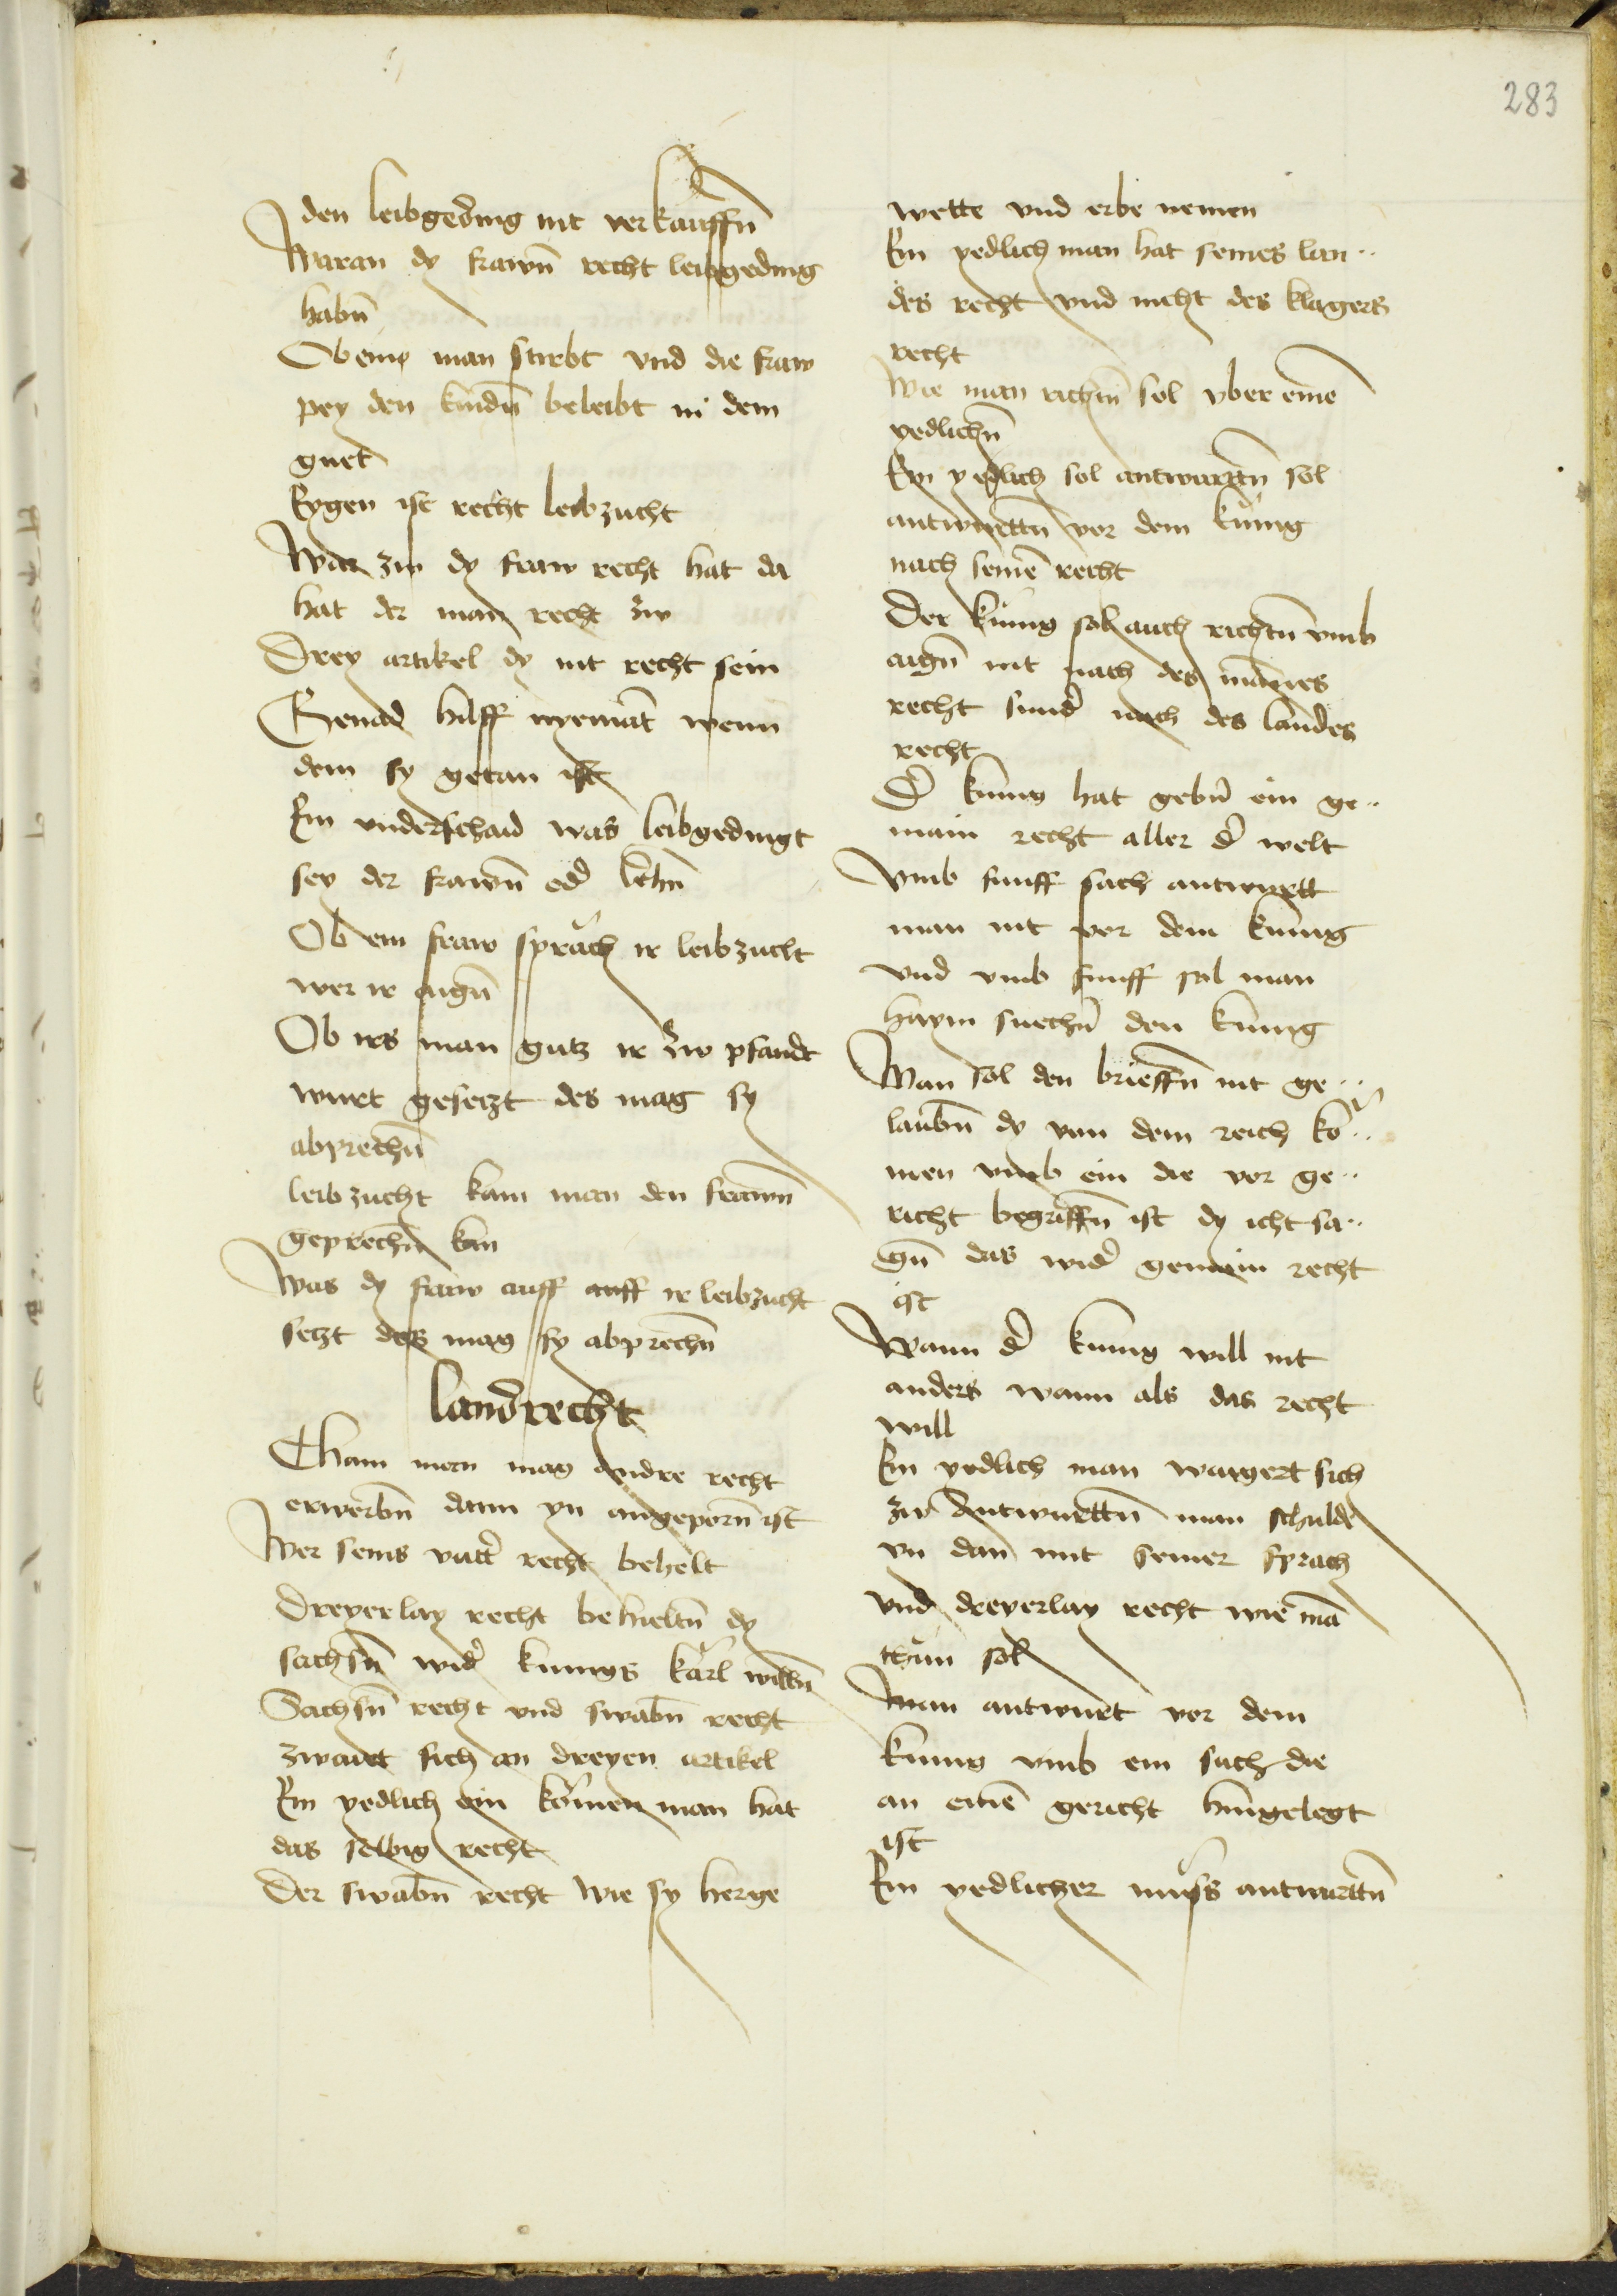 283
den leibgeding nit verkauffn̄
Waran dy frawn̄ recht leibgeding
habn̄
Ob eine man stirbt vnd die fraw
pey den kindn̄ beleibt in dem
guet
Eygen ist recht leibzucht
War zw dy fraw recht hat da
hat der man recht zw
Drey artikel dy nit recht sein
Genad hilff nyemāt wenn
dem sy getan ist
Ein vnderschaid was leibgedingt
sey der frawn̄ od̄ lehn̄
Ob ein fraw sprach ir leibzucht
wer ir aign̄
Ob irs man gutz ir zw pfandt
wurt gesetzt des mag sy
abprechn̄
leibzucht kam man den frawn̄
geprechn̄ kan
Was dy fraw auff auff ir leibzucht
setzt des mag sy abprechn̄
landrecht
Cham man mag andre recht
erwerbn̄ dann yn angeporn̄ ist
Wer seins vatt̄ recht behelt
Dreyerlay recht behieltn̄ dy
sachsn̄ wid̄ kunigs karl willn̄
Sachsn̄ recht vnd swabn̄ recht
zwaiet sich an dreyen artikel
Ein yedlich ein komen man hat
das selbig recht
Der swabn̄ recht wie sy herge
wette vnd erbe nemen
Ein yedlich man hat seines lan..
des recht vnd nicht des klagers
recht
Wie man richtn̄ sol vber einē
yedlichn̄
Ein yedlich sol antwurttn̄ sol
antwurttn̄ vor dem kunig
nach seinē recht
Der kunig sol auch richtn̄ vmb
aign̄ nit nach des mannes
recht sund̄ nach des landes
recht
D̄ kunig hat gebn̄ ein ge..
main recht aller d̄ welt
Vmb funff sach antwurtt
man nit vor dem kunig
vnd vmb funff sol man
haym suechn̄ den kunig
Man sol den brieffn̄ nit ge..
laubn̄ dy von dem reich ko..
men vmb ein die vor ge..
richt begriffn̄ ist dy icht sa..
gn̄ das wid̄ gemein recht
ist
Wann d̄ kunig will nit
anders wann als das recht
will
Ein yedlich man waygert sich
zw Antwurttn̄ man schulde
yn dan mit seiner sprach
vnd dreyerlay recht wie mā
thun sol
Man antwurt vor dem
kunig vmb ein sach die
an einē gericht hingelegt
ist
Ein yedlicher muss antwurttn̄